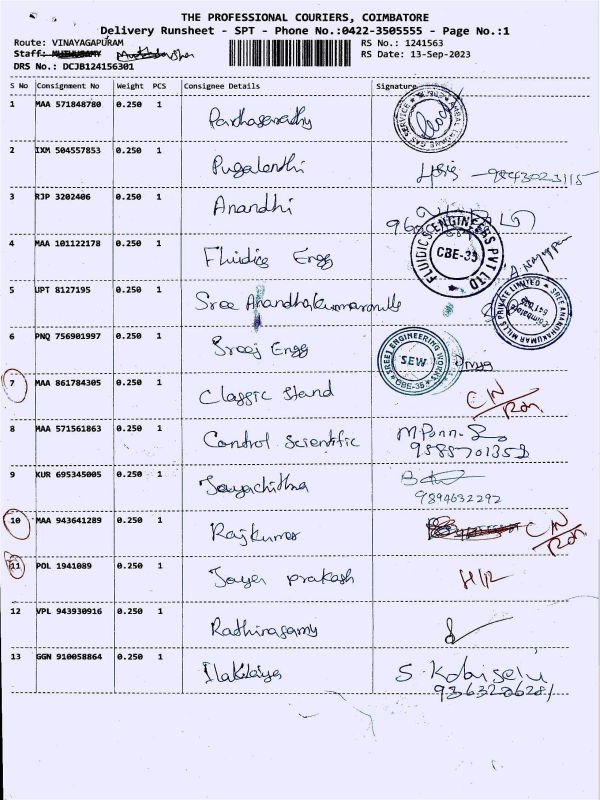 THE PROFESSIONAL COURIERS, COIMBATORE
Delivery Runsheet - SPT - Phone No.:0422-3505555 - Page No.:1
Route: VINAYAGAPURAM
RS No.: 1241563
Staff:
RS Date: 13-Sep-2023
DRS No.: DCJB124156301
S No Consignment No Weight PCS Consignee Details Signature
1 MAA 571848780 0.250 1 Parthasarathy
2 IXM 504557853 0.250 1 Pugalenthi
3 RJP 3202406 0.250 1 Anandhi
4 MAA 101122178 0.250 1 Fluidics Engg
FLUIDICS ENGINEERS PVT LTD
CBE-35
5 UPT 8127195 0.250 1 Sree
SREE ANANDHAKUMAR MILLS PRIVATE LIMITED
6 PNQ 756901997 0.250 1 Sreej Engg
SREEJ ENGINEERING WORKS
SEW
CBE-35
7 MAA 861784305 0.250 1 Classic Stand C/N
8 MAA 571561863 0.250 1 Control Scientific
9 KUR 695345005 0.250 1 Jayachithra
9894632292
10 MAA 943641289 0.250 1 Rajkumar C/N
11 POL 1941089 0.250 1 Jaya prakash
12 VPL 943930916 0.250 1 Rathinasamy
13 GGN 910058864 0.250 1 Ilakkiya